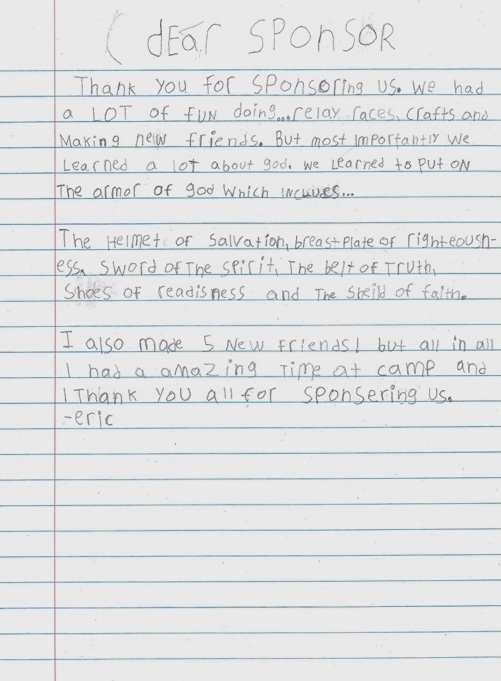 dEar SPOnSOR
Thank you for SPOnsoring us. we had
a LOT of fun doing...relay races, crafts and
Making new friends. But most importantly we
Learned a lot about god. we Learned to put on
The armor of god which incluves...
The Helmet of Salvation, breastplate of righteoushn-
ess, sword of The spirit, The belt of Truth,
Shoes of readisness and The Sheild of faith.
I also made 5 new friends! but all in all
I had a amazing Time at camp and
I Thank you all for sponsering us.
-eric